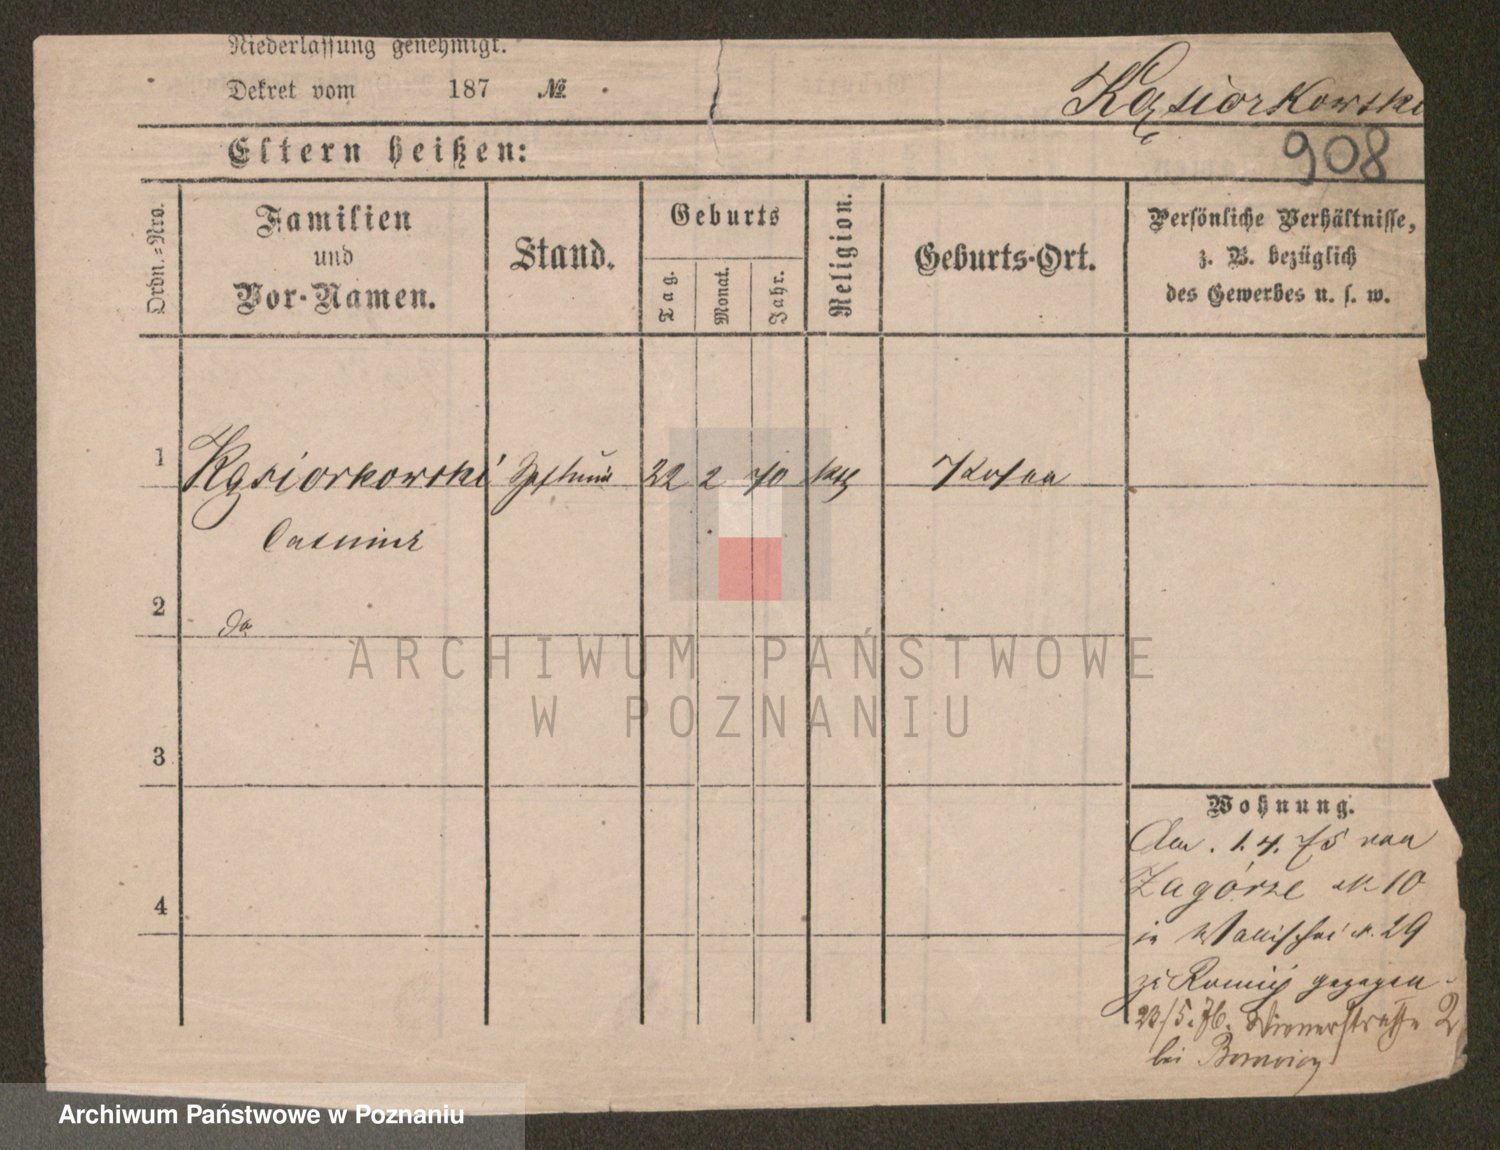 Niederlassung genehmigt.
Dekret vom 187 №
Kąsiorkowski
Eltern heißen:
908
Ordn.=Nro.
Familien
und
Vor-Namen.
Stand.
Geburts
Tag.
Monat.
Jahr.
Religion.
Geburts-Ort.
Persönliche Verhältnisse,
z. B. bezüglich
des Gewerbes u. s. w.
1 Kąsiorkowski 22 2 70 kth
Casimir
2
3
4
Wohnung.
1. 4. 75 von
Zagórze № 10
in Wallischei №. 29
gezogen
23/5. 76. Wienerstraße 2
bei
ARCHIWUM PAŃSTWOWE
W POZNANIU
Archiwum Państwowe w Poznaniu